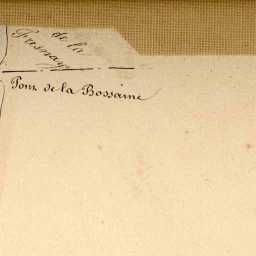 de la
Fresnay
Pour de la Bossaine